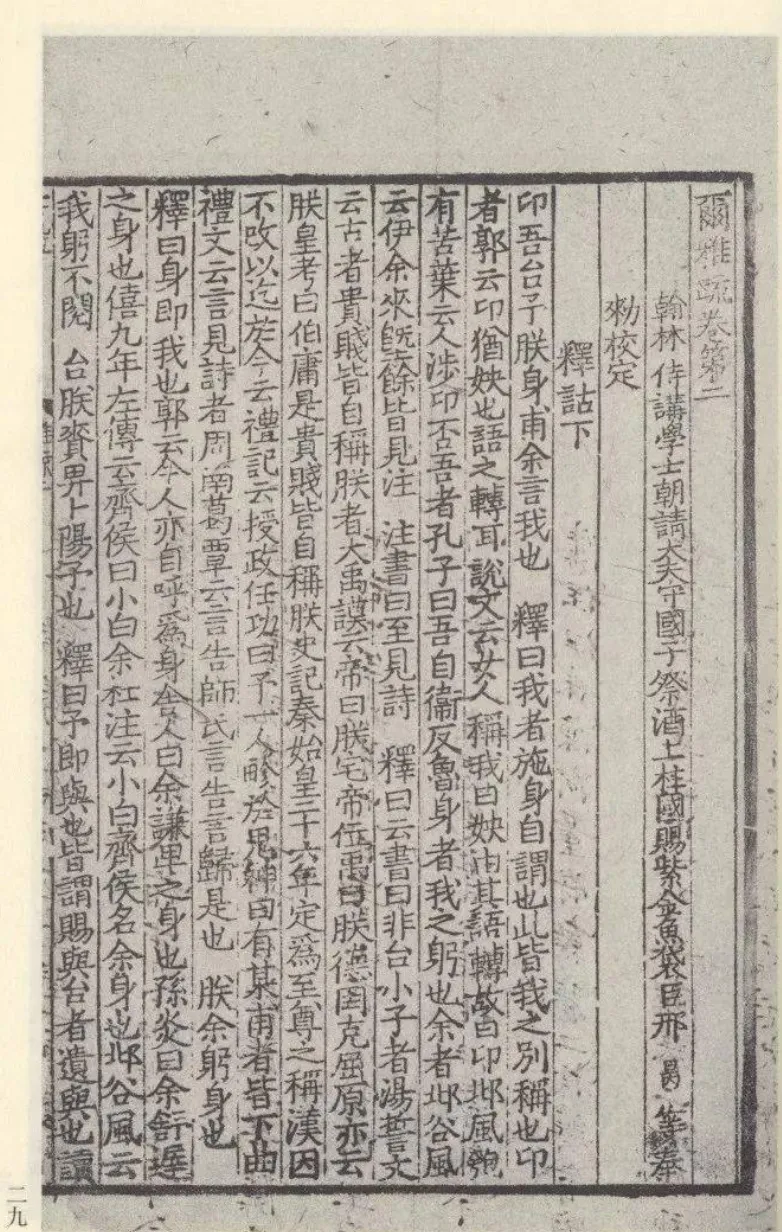 爾雅疏卷第二
翰林侍講學士朝請大夫守國子祭酒上柱國賜紫金魚袋臣邢昺等奉
勑校定
釋詁下
卬吾台予朕身甫余言我也　釋曰我者施身自謂也此皆我之別稱也卬
者郭云卬猶姎也語之轉耳說文云女人稱我曰姎由其語轉故曰卬邶風匏
有苦葉云人涉卬否吾者孔子曰吾自衞反魯身者我之躬也余者邶谷風
云伊余來旣餘皆見注　注書曰至見詩　釋曰云書曰非台小子者湯誓文
云古者貴賤皆自稱朕者大禹謨云帝曰朕宅帝位禹曰朕德罔克屈原亦云
朕皇考曰伯庸是貴賤皆自稱朕史記秦始皇二十六年定爲至尊之稱漢因
不改以迄於今云禮記云授政任功曰予一人畛於鬼神曰有某甫者皆下曲
禮文云言見詩者周南葛覃云言告師氏言告言歸是也　朕余躬身也
釋曰身即我也郭云今人亦自呼爲身舍人曰余謙卑之身也孫炎曰余舒遲
之身也僖九年左傳云齊侯曰小白余杜注云小白齊侯名余身也邶谷風云
我躬不閱　台朕賚畀卜陽予也　釋曰予即與也皆謂賜與台者遺與也讀
二九